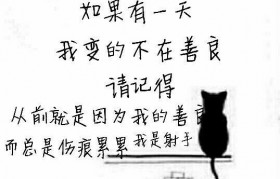 如果有一天
我变的不在善良
请记得
从前就是因为我的善良
而总是伤痕累累我是射手